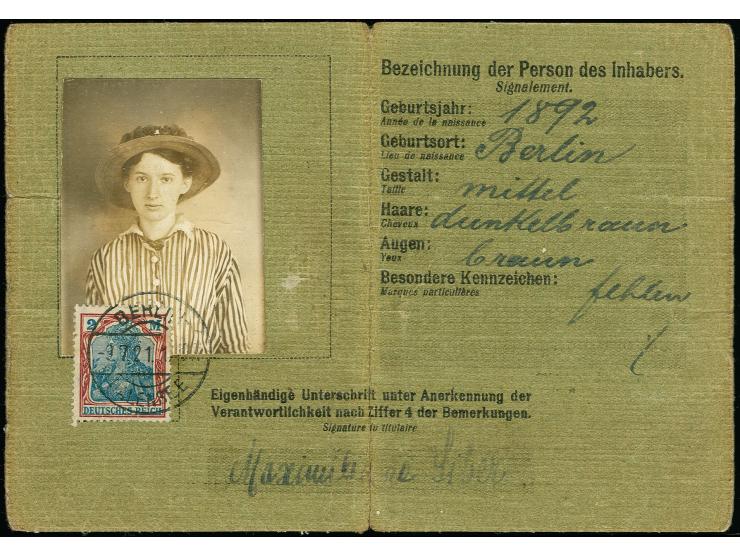 Bezeichnung der Person des Inhabers.
Signalement.
Geburtsjahr: 1892
Année de la naissance
Geburtsort: Berlin
Lieu de naissance
Gestalt: mittel
Taille
Haare: dunkelbraun
Cheveux
Augen: braun
Yeux
Besondere Kennzeichen: fehlen
Marques particulières
BERLIN
2 M
DEUTSCHES REICH
Eigenhändige Unterschrift unter Anerkennung der
Verantwortlichkeit nach Ziffer 4 der Bemerkungen.
Signature du titulaire